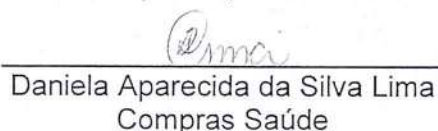 Daniela Aparecida da Silva Lima
Compras Saúde